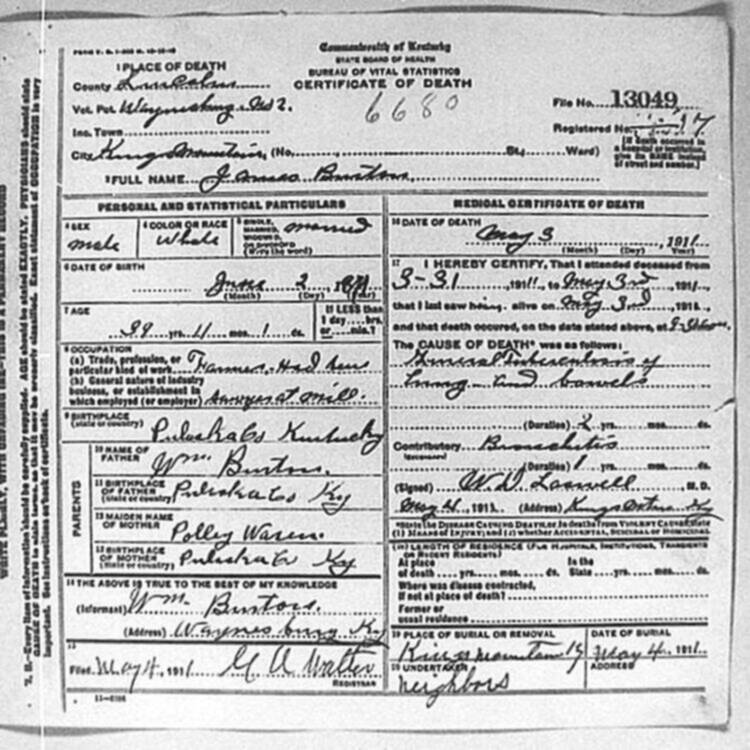 Commonwealth of Kentucky
STATE BOARD OF HEALTH
BUREAU OF VITAL STATISTICS
CERTIFICATE OF DEATH
6680
1 PLACE OF DEATH
County Lincoln
Vot. Pct. Waynesburg No 2.
Inc. Town
City Kings Mountain, (No. St; Ward)
File No. 13049
Registered No. 17
[If death occurred in a hospital or institution, give its NAME instead of street and number.]
2 FULL NAME James Burton
PERSONAL AND STATISTICAL PARTICULARS
3 SEX
male
4 COLOR OR RACE
White
5 SINGLE, MARRIED, WIDOWED, OR DIVORCED (Write the word)
married
6 DATE OF BIRTH
June 2
(Month) (Day) (Year)
7 AGE
39 yrs. 11 mos. 1 ds.
If LESS than 1 day hrs. or min.?
8 OCCUPATION
(a) Trade, profession, or particular kind of work Farmer, Had been
(b) General nature of industry business, or establishment in which employed (or employer) Sawyer at mill.
9 BIRTHPLACE
(State or country)
Pulaska Co Kentucky
PARENTS
10 NAME OF FATHER
Wm. Burton.
11 BIRTHPLACE OF FATHER (State or country)
Pulaska Co Ky
12 MAIDEN NAME OF MOTHER
Polley Waren
13 BIRTHPLACE OF MOTHER (State or country)
Pulaska Co Ky
14 THE ABOVE IS TRUE TO THE BEST OF MY KNOWLEDGE
(Informant) Wm. Burton.
(Address) Waynesburg Ky
15
Filed May 4, 1911 G A Walter
REGISTRAR
MEDICAL CERTIFICATE OF DEATH
16 DATE OF DEATH
May 3, 1911
(Month) (Day) (Year)
17 I HEREBY CERTIFY, That I attended deceased from
3-31 1911, to May 3rd, 1911,
that I last saw him alive on May 3rd, 1911,
and that death occurred, on the date stated above, at
The CAUSE OF DEATH* was as follows:
General Tuberculosis of
Lung and bowels
(Duration) 2 yrs. mos. ds.
Contributory Bronchitis
(Secondary)
(Duration) 1 yrs. mos. ds.
(Signed) W. D. Laswell M. D.
May 4, 1911 (Address) Kings Mtn Ky
*State the DISEASE CAUSING DEATH, or, in deaths from VIOLENT CAUSES, state (1) MEANS OF INJURY; and (2) whether ACCIDENTAL, SUICIDAL or HOMICIDAL
18 LENGTH OF RESIDENCE (FOR HOSPITALS, INSTITUTIONS, TRANSIENTS OR RECENT RESIDENTS)
At place of death yrs. mos. ds. In the State yrs. mos. ds.
Where was disease contracted, if not at place of death?
Former or usual residence
19 PLACE OF BURIAL OR REMOVAL
Kings Mountain Ky
DATE OF BURIAL
May 4, 1911
20 UNDERTAKER
neighbors
ADDRESS